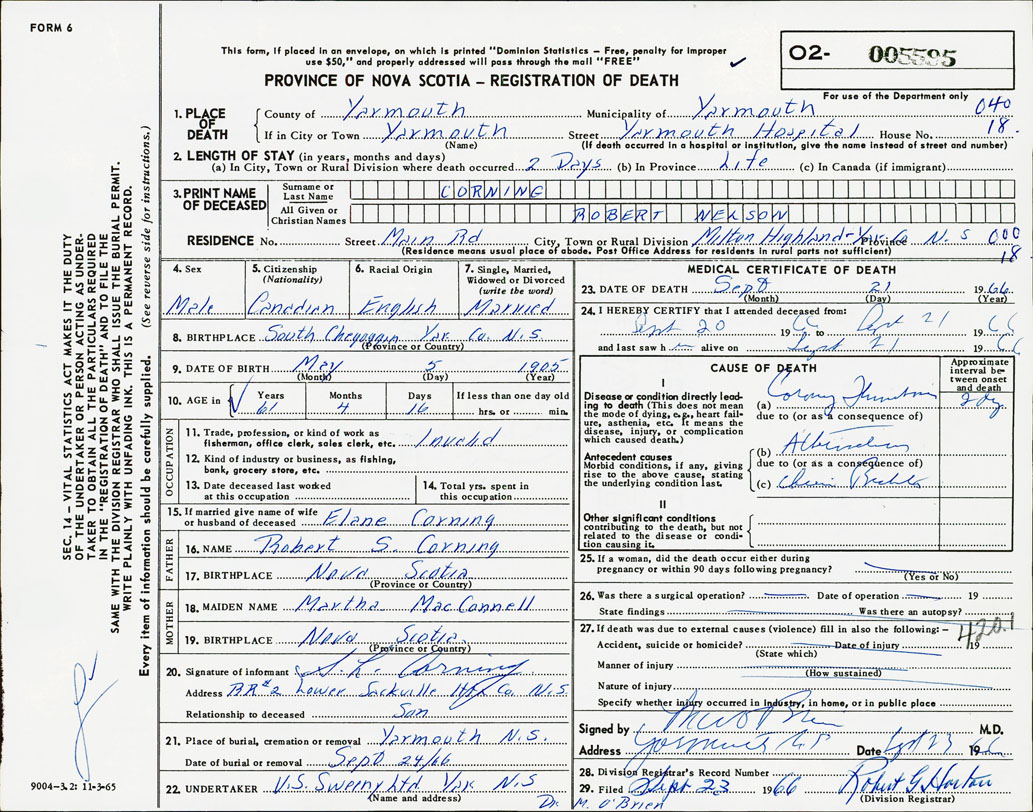 FORM 6
This form, if placed in an envelope, on which is printed "Dominion Statistics – Free, penalty for improper
use $50," and properly addressed will pass through the mail "FREE"
✓
O2- 005595
For use of the Department only
PROVINCE OF NOVA SCOTIA – REGISTRATION OF DEATH
SEC. 14 – VITAL STATISTICS ACT MAKES IT THE DUTY
OF THE UNDERTAKER OR PERSON ACTING AS UNDER-
TAKER TO OBTAIN ALL THE PARTICULARS REQUIRED
IN THE "REGISTRATION OF DEATH" AND TO FILE THE
SAME WITH THE DIVISION REGISTRAR WHO SHALL ISSUE THE BURIAL PERMIT.
WRITE PLAINLY WITH UNFADING INK. THIS IS A PERMANENT RECORD.
Every item of information should be carefully supplied. (See reverse side for instructions.)
1. PLACE OF DEATH
County of Yarmouth Municipality of Yarmouth 040
If in City or Town Yarmouth Street Yarmouth Hospital House No. 18
(Name) (If death occurred in a hospital or institution, give the name instead of street and number)
2. LENGTH OF STAY (in years, months and days)
(a) In City, Town or Rural Division where death occurred 2 Days (b) In Province Life (c) In Canada (if immigrant)
3. PRINT NAME OF DECEASED
Surname or Last Name CORNING
All Given or Christian Names ROBERT NELSON
RESIDENCE No. Street Main Rd City, Town or Rural Division Milton Highland - Yar. Co Province N.S 000
(Residence means usual place of abode. Post Office Address for residents in rural parts not sufficient) 18
4. Sex
Male
5. Citizenship
(Nationality)
Canadian
6. Racial Origin
English
7. Single, Married,
Widowed or Divorced
(write the word)
Married
8. BIRTHPLACE South Chegoggin Yar. Co. N.S.
(Province or Country)
9. DATE OF BIRTH May 5 1905
(Month) (Day) (Year)
10. AGE in Years Months Days If less than one day old
61 4 16 hrs. or min.
OCCUPATION
11. Trade, profession, or kind of work as
fisherman, office clerk, sales clerk, etc. Invalid
12. Kind of industry or business, as fishing,
bank, grocery store, etc.
13. Date deceased last worked
at this occupation
14. Total yrs. spent in
this occupation
15. If married give name of wife
or husband of deceased Elane Corning
FATHER
16. NAME Robert S. Corning
17. BIRTHPLACE Nova Scotia
(Province or Country)
MOTHER
18. MAIDEN NAME Martha MacConnell
19. BIRTHPLACE Nova Scotia
(Province or Country)
20. Signature of informant S. L. Corning
Address R.R #2 Lower Sackville Hfx Co. N.S.
Relationship to deceased Son
21. Place of burial, cremation or removal Yarmouth N.S.
Date of burial or removal Sept 24/66
22. UNDERTAKER V.S. Sweeny Ltd Yar N.S
(Name and address)
9004-3.2: 11-3-65
MEDICAL CERTIFICATE OF DEATH
23. DATE OF DEATH Sept 21 1966
(Month) (Day) (Year)
24. I HEREBY CERTIFY that I attended deceased from:
Sept 20 1966 to Sept 21 66
and last saw h alive on Sept 21 1966
CAUSE OF DEATH
Approximate
interval be-
tween onset
and death
I
Disease or condition directly lead-
ing to death (This does not mean
the mode of dying, e.g., heart fail-
ure, asthenia, etc. It means the
disease, injury, or complication
which caused death.)
(a) 2 dy
due to (or as a consequence of)
Antecedent causes
Morbid conditions, if any, giving
rise to the above cause, stating
the underlying condition last.
(b)
due to (or as a consequence of)
(c)
II
Other significant conditions
contributing to the death, but not
related to the disease or condi-
tion causing it.
25. If a woman, did the death occur either during
pregnancy or within 90 days following pregnancy?
(Yes or No)
26. Was there a surgical operation? Date of operation 19
State findings Was there an autopsy?
27. If death was due to external causes (violence) fill in also the following:– 420.1
Accident, suicide or homicide? Date of injury 19
(State which)
Manner of injury
(How sustained)
Nature of injury
Specify whether injury occurred in Industry, in home, or in public place
Signed by M.D.
Address Yarmouth N.S Date Sept 23 1966
28. Division Registrar's Record Number
29. Filed Sept 23 1966 Robert G Horton
(Division Registrar)
Dr. M. O'Brien